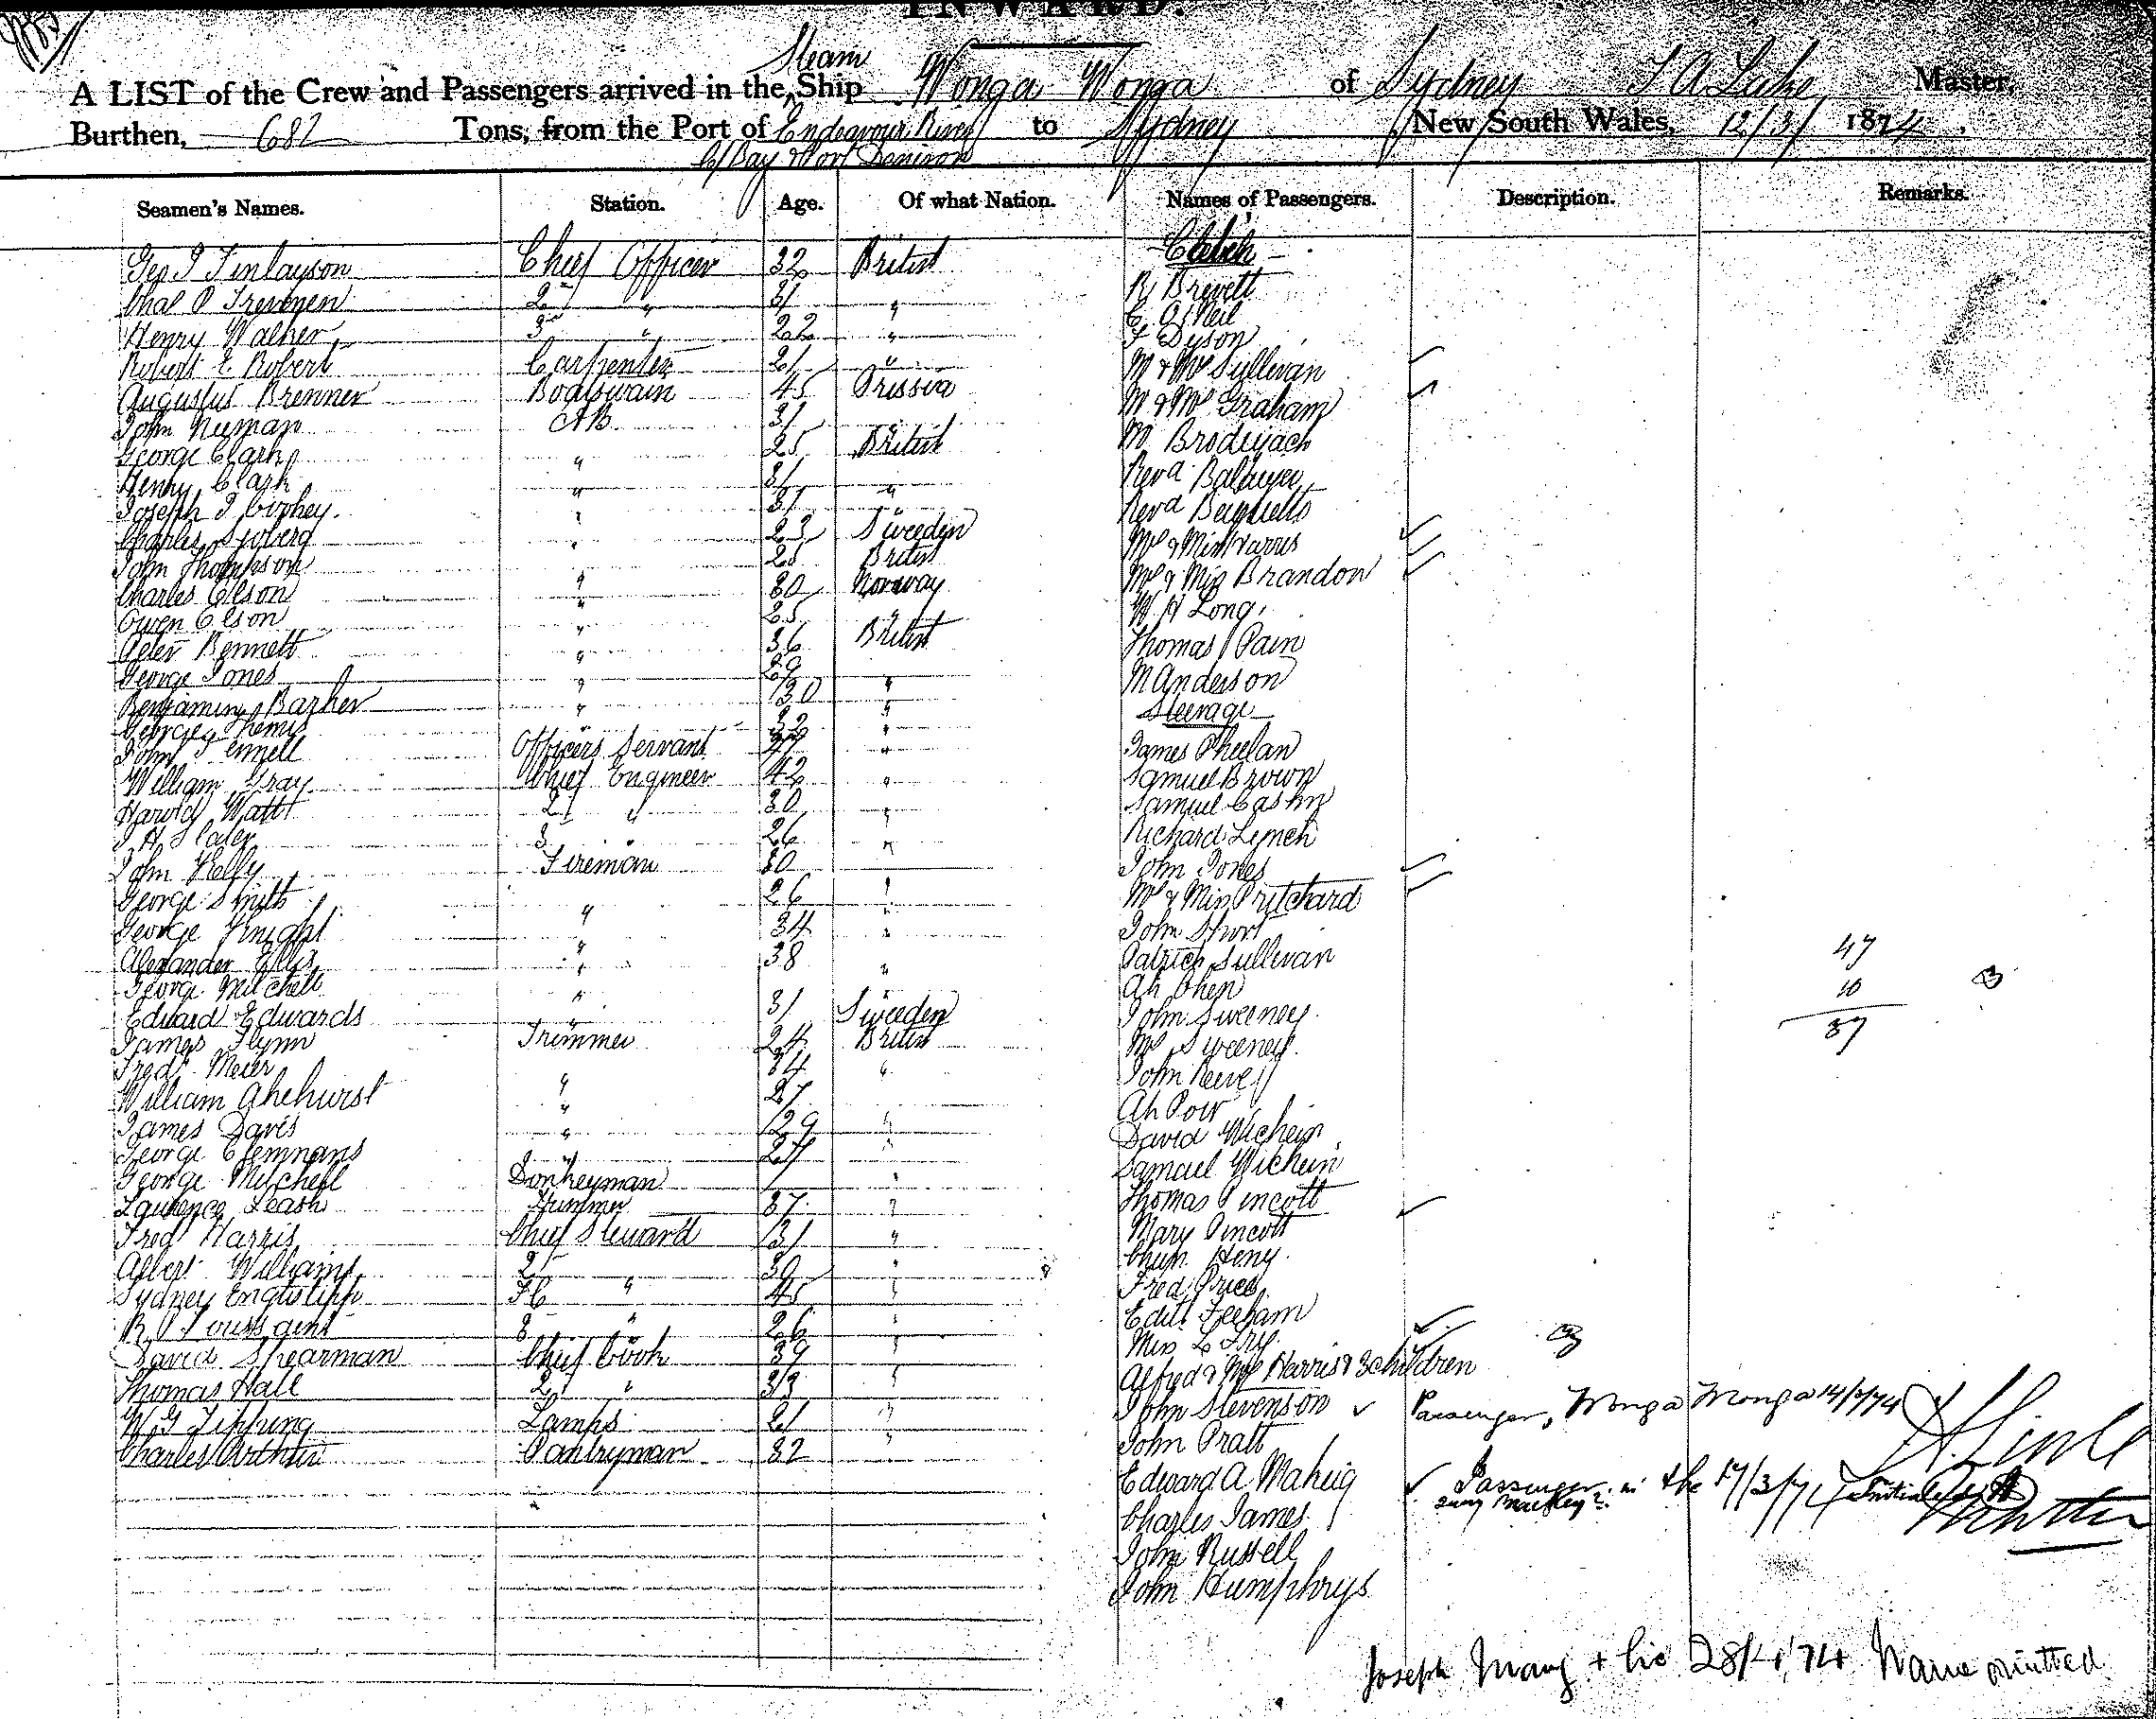 INWARD.
Steam
A LIST of the Crew and Passengers arrived in the Ship Wonga Wonga of Sydney J A Luke Master,
Burthen, 682 Tons, from the Port of Endeavour River to Sydney New South Wales, 12/3/ 1874.
C/Bay & Port Denison
Seamen's Names. Station. Age. Of what Nation. Names of Passengers. Description. Remarks.
Geo J Finlayson Chief Officer 32 British
R Brevett
Chas P 2 " 31 "
C O'Neil
Henry Walker 3 " 22 "
F Dyson
Robert E Robert Carpenter 21 "
Mr & Mrs Sullivan
Augustus Brenner Boatswain 45 Prussia
Mr & Mrs Graham
John Neuman AB 31
George Clark " 25 British
Henry Clark " 31 "
Joseph J " 31 "
Charles Sjoberg " 23 Sweeden
Mrs & Miss Harris
John Thompson " 25 British
Mrs & Miss Brandon
Charles Olson " 30 Norway
W H Long
Owen Olson " 25 "
Peter Bennett " 36 British
Thomas Pain
George Jones " 29
M Anderson
Benjamin Barker " 30 "
Steerage
George " 32 "
John Fennell Officers Servant "
James Pheelan
William Gray Chief Engineer 42 "
Samuel Brown
Harold Watt 2 " 30 "
Samuel Cashn
J H Slater 3 " 26 "
Richard Lynch
John Kelly Fireman 30
John Jones
George Smith 26 "
Mrs & Miss Pritchard
George Knight " 34 "
John Short
Alexander Ellis " 38 "
Patrick Sullivan 47
George Mitchell "
Ah Chen 10
Edward Edwards " 31 Sweeden
John Sweeney 37
James Flynn Trimmer 24 British
Mrs Sweeney
Fredk Meier 34 "
John Reeve
William Akehurst " 27
Ah Pow
James Davis " 29 "
David Wichein
George Clemnans " 27 "
Samuel Wichein
George Mitchell Donkeyman "
Thomas Pincott
Laurence Leash Trimmer 37 "
Mary Pincott
Fred Harris Chief Steward 31 "
Chun Heny
Albert Williams 2 30 "
Fred Price
Sydney FC " 45 "
Edith Feeham
R P 3 " 26 "
Miss L Fry
David Spearman Chief Cook 39 "
Alfred & Mrs Harris & 3 children
Thomas Hall 2 " 33 "
John Stevenson Passenger, Wonga Wonga 14/7/74
W G Tipping Lamps 21 "
John Pratt
Charles Arthur Pantryman 32 "
Edward A Maheig Passenger in the 17/3/74
Charles James
John Russell
John Humphrys
Joseph 28/4/74 Name omitted